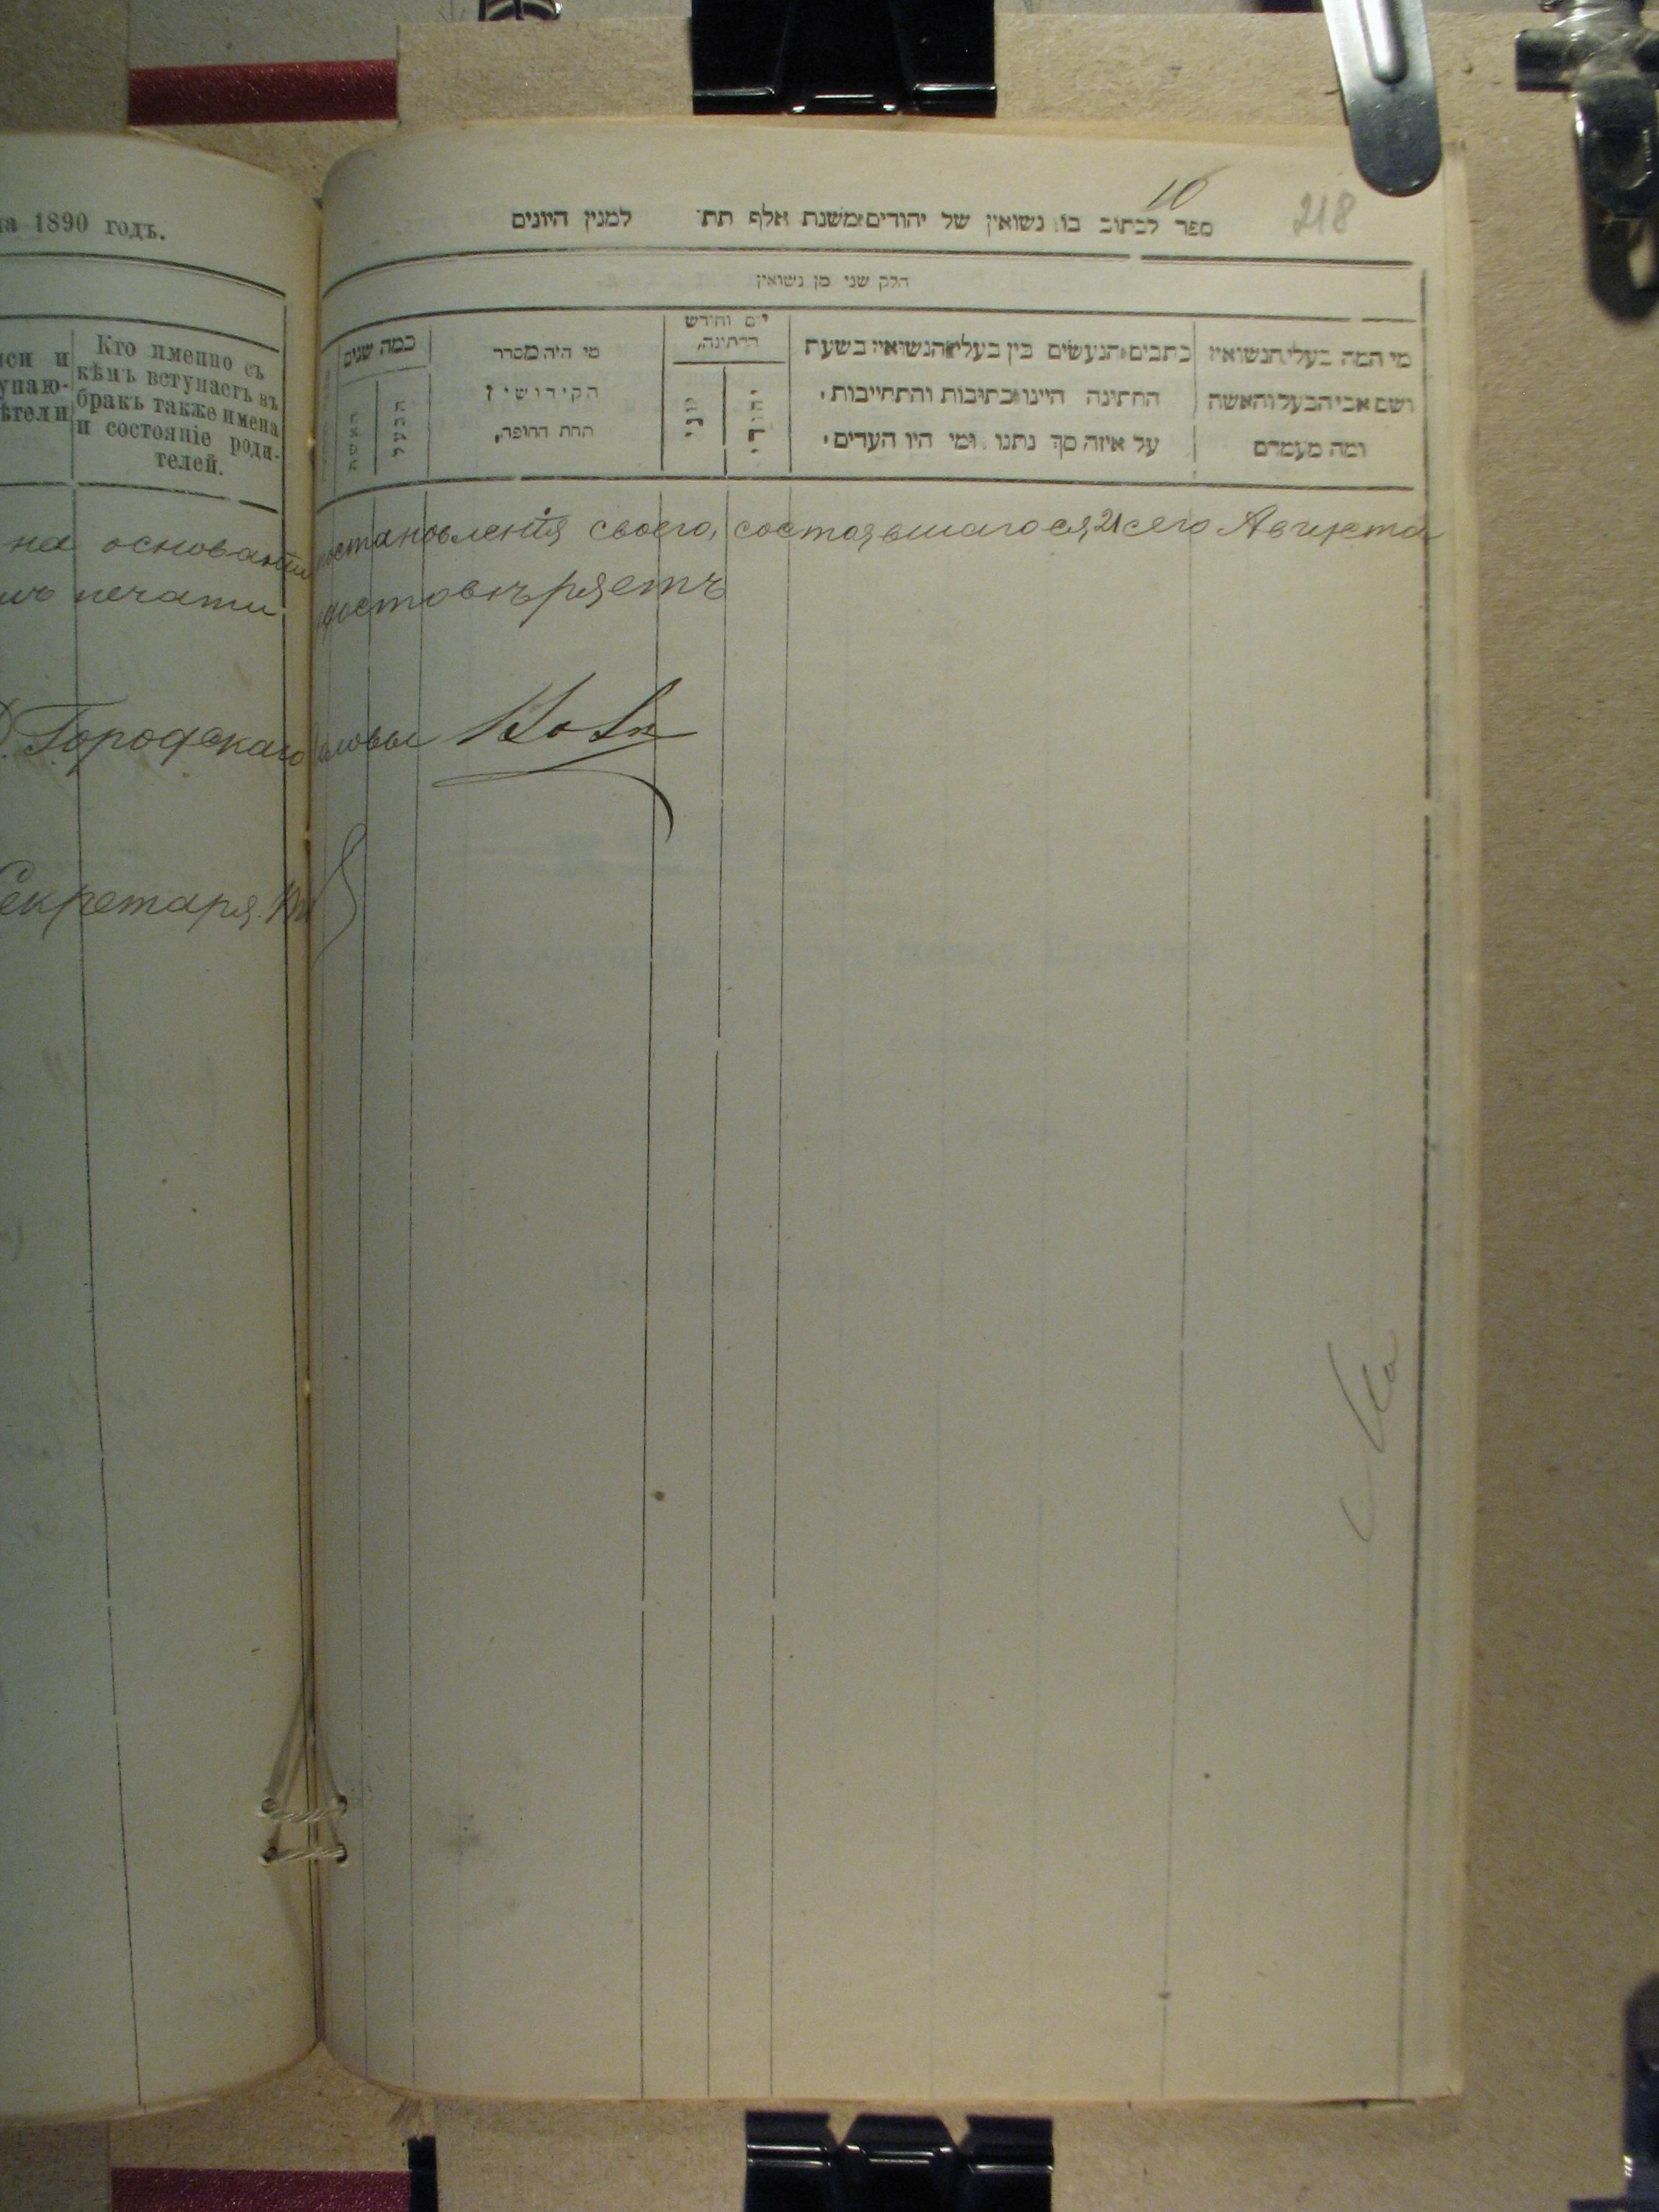 на 1890 годъ.
Кто именно съ
кѣмъ вступаетъ въ
бракъ также имена
и состояніе роди-
телей.
10
218
ספר לכתוב בו נשואין של יהודים משנת אלף תת למנין היונים
חלק שני מן נשואין
מי המה בעלי הנשואין
ושם אבי הבעל והאשה
ומה מעמדם
כתבים הנעשים בין בעלי הנשואין בשעת
החתינה היינו כתיבות והתחייבות,
על איזה סך נתנו ומי היו העדים,
יום וחודש
החתינה,
יהודי
יוני
מי היה מסדר
הקידושין
תחת החופה,
כמה שנים
הבעל
האשה
на основаніи постановленія своего, состоявшагося 21 сего Августа
печати удостовѣряетъ
Городскаго Головы
Секретаря